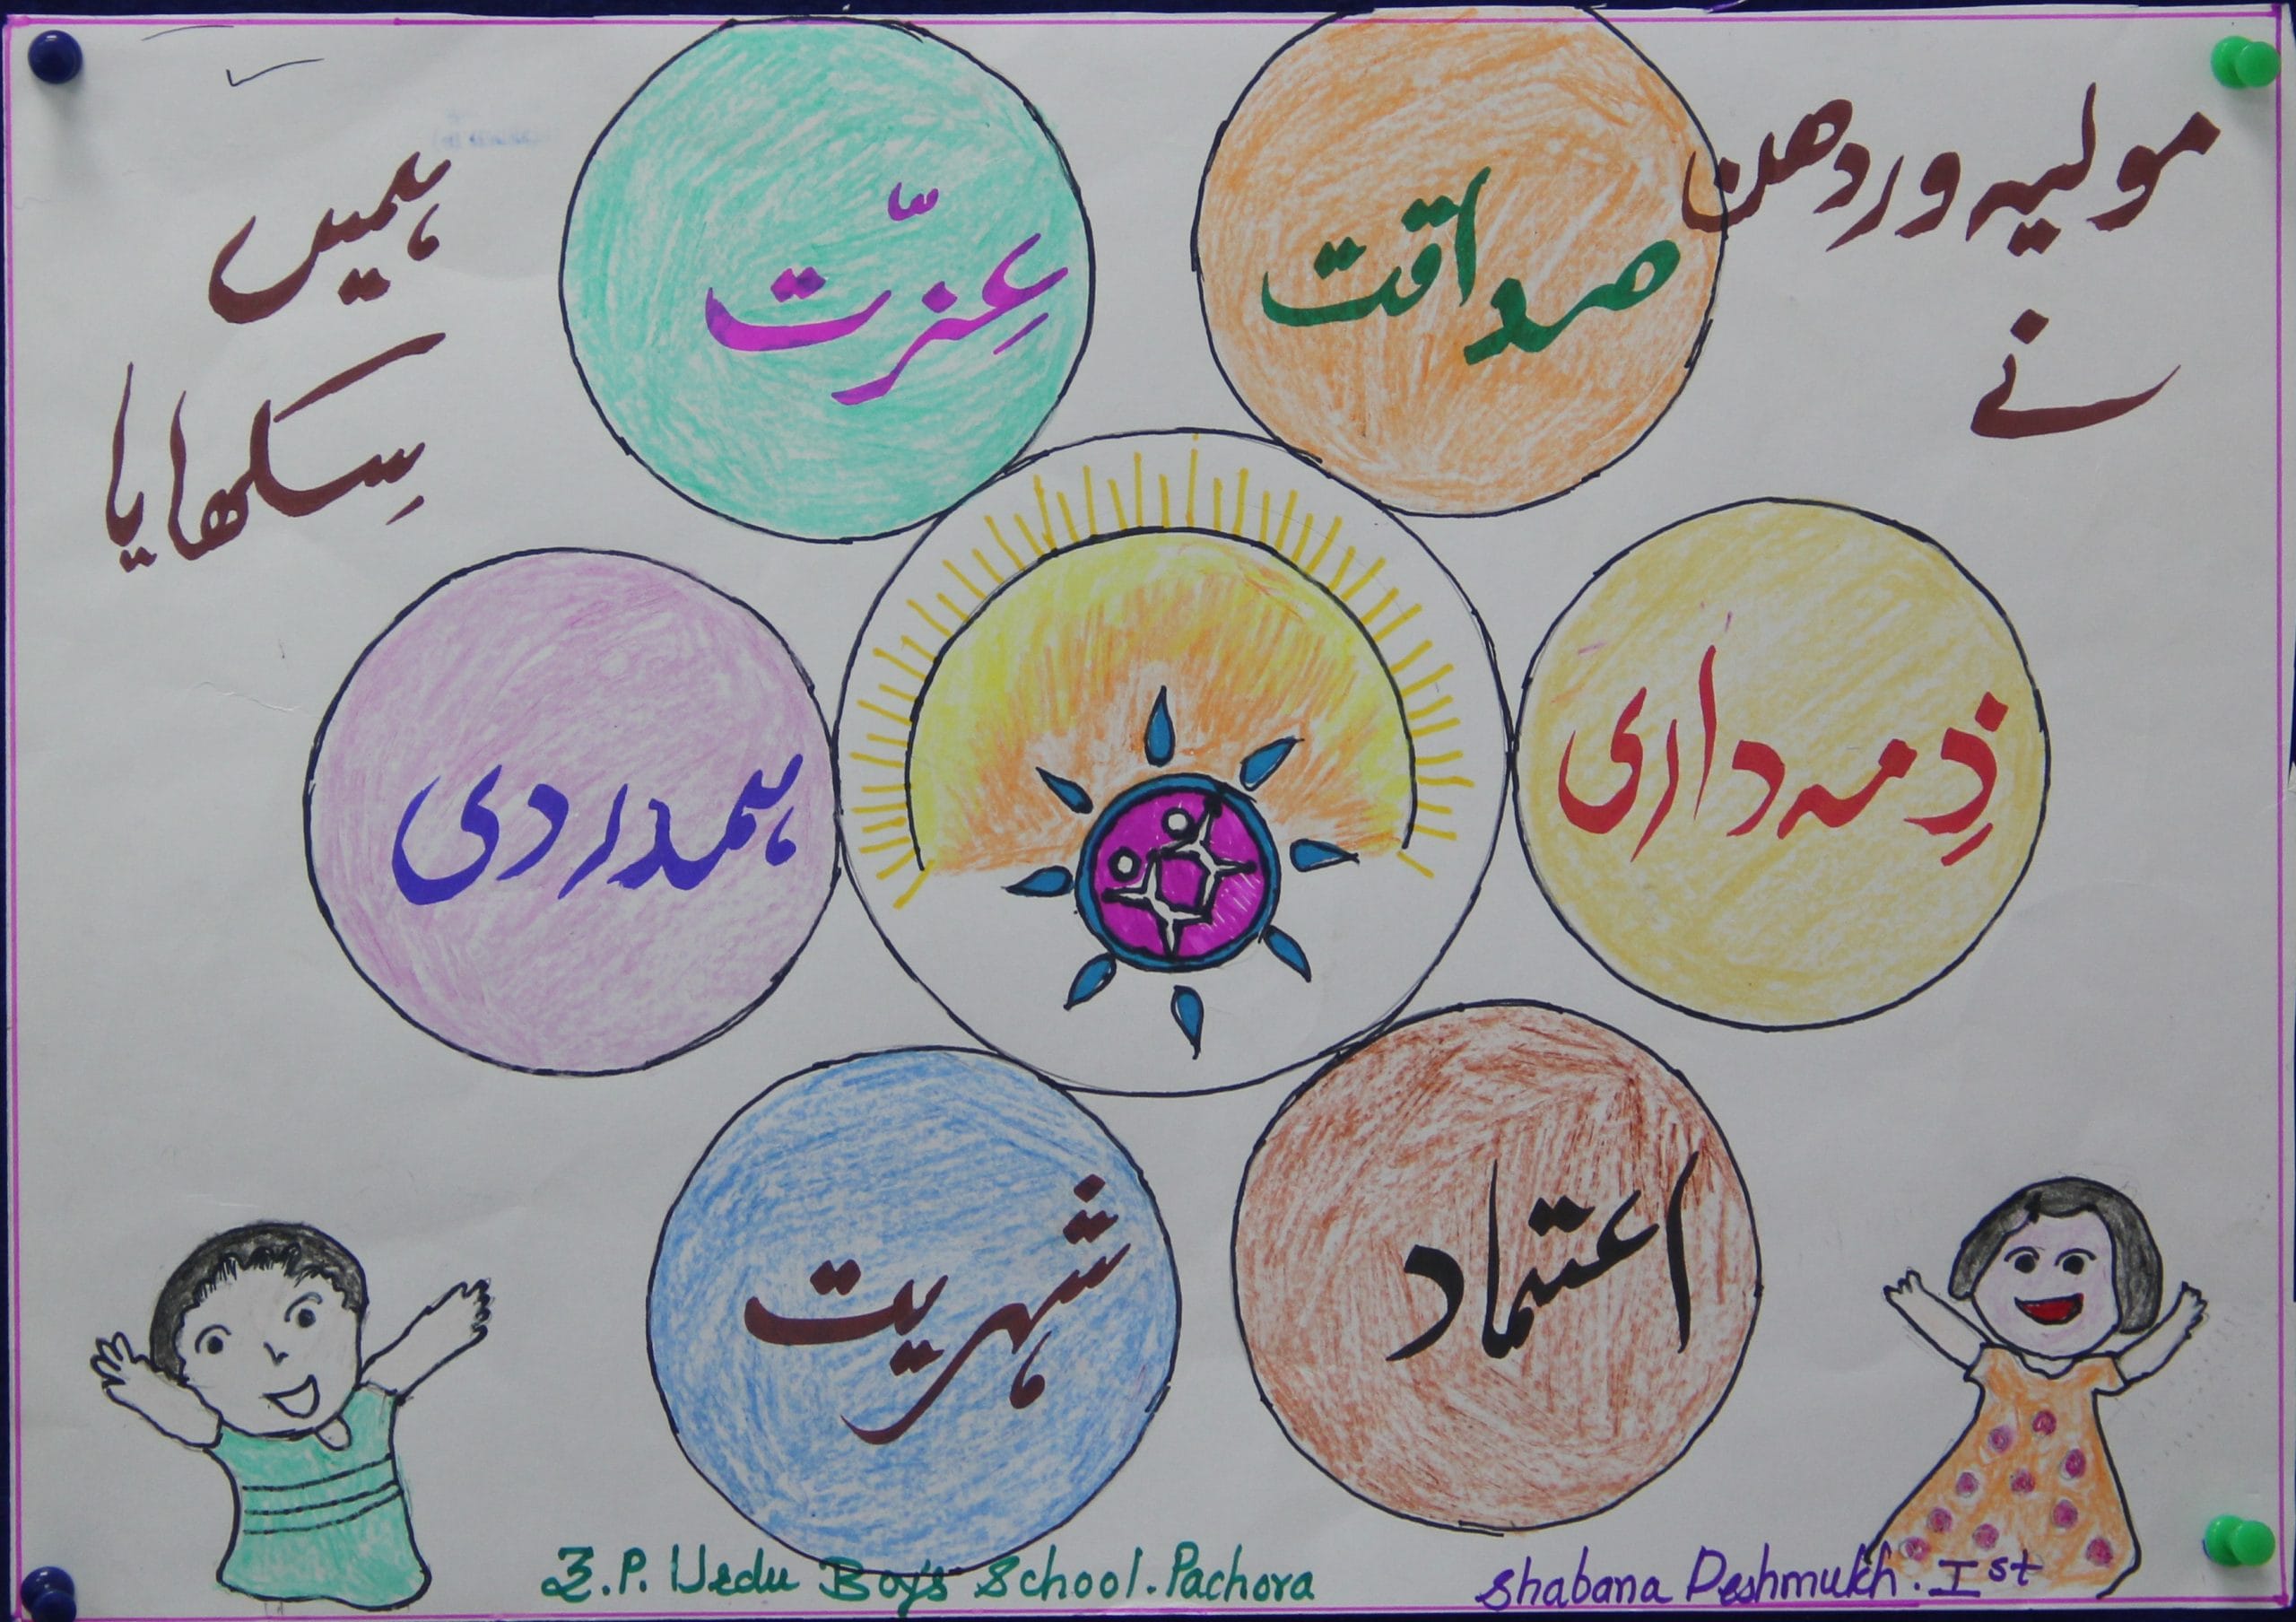 مولیہ وردھن
نے
ہمیں
سِکھایا
صداقت
عِزّت
ذِمہ داری
ہمدردی
اعتماد
شہریت
Z.P. Urdu Boys School. Pachora
Shabana Deshmukh. Ist